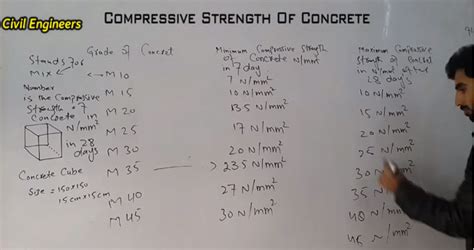 Civil Engineers
COMPRESSIVE STRENGTH OF CONCRETE
Stands For
M1X
Number
is the Compressive
Strength of
Concrete in
N/mm²
in 28
days
Concrete Cube
Size = 150x150
15cmx15cm
Grade of Concret
M 10
M 15
M 20
M 25
M 30
M 35
M 40
M 45
Minimum Compressive Strength
of Concrete N/mm²
in 7 day
7 N/mm²
10 N/mm²
13.5 N/mm²
17 N/mm²
20 N/mm²
23.5 N/mm²
27 N/mm²
30 N/mm²
Maximum Compressive
Strength of
in N/mm² after
28 days
10 N/mm²
15 N/mm²
20 N/mm²
25 N/mm²
30 N/mm²
35 N/mm²
40 N/mm²
45 N/mm²